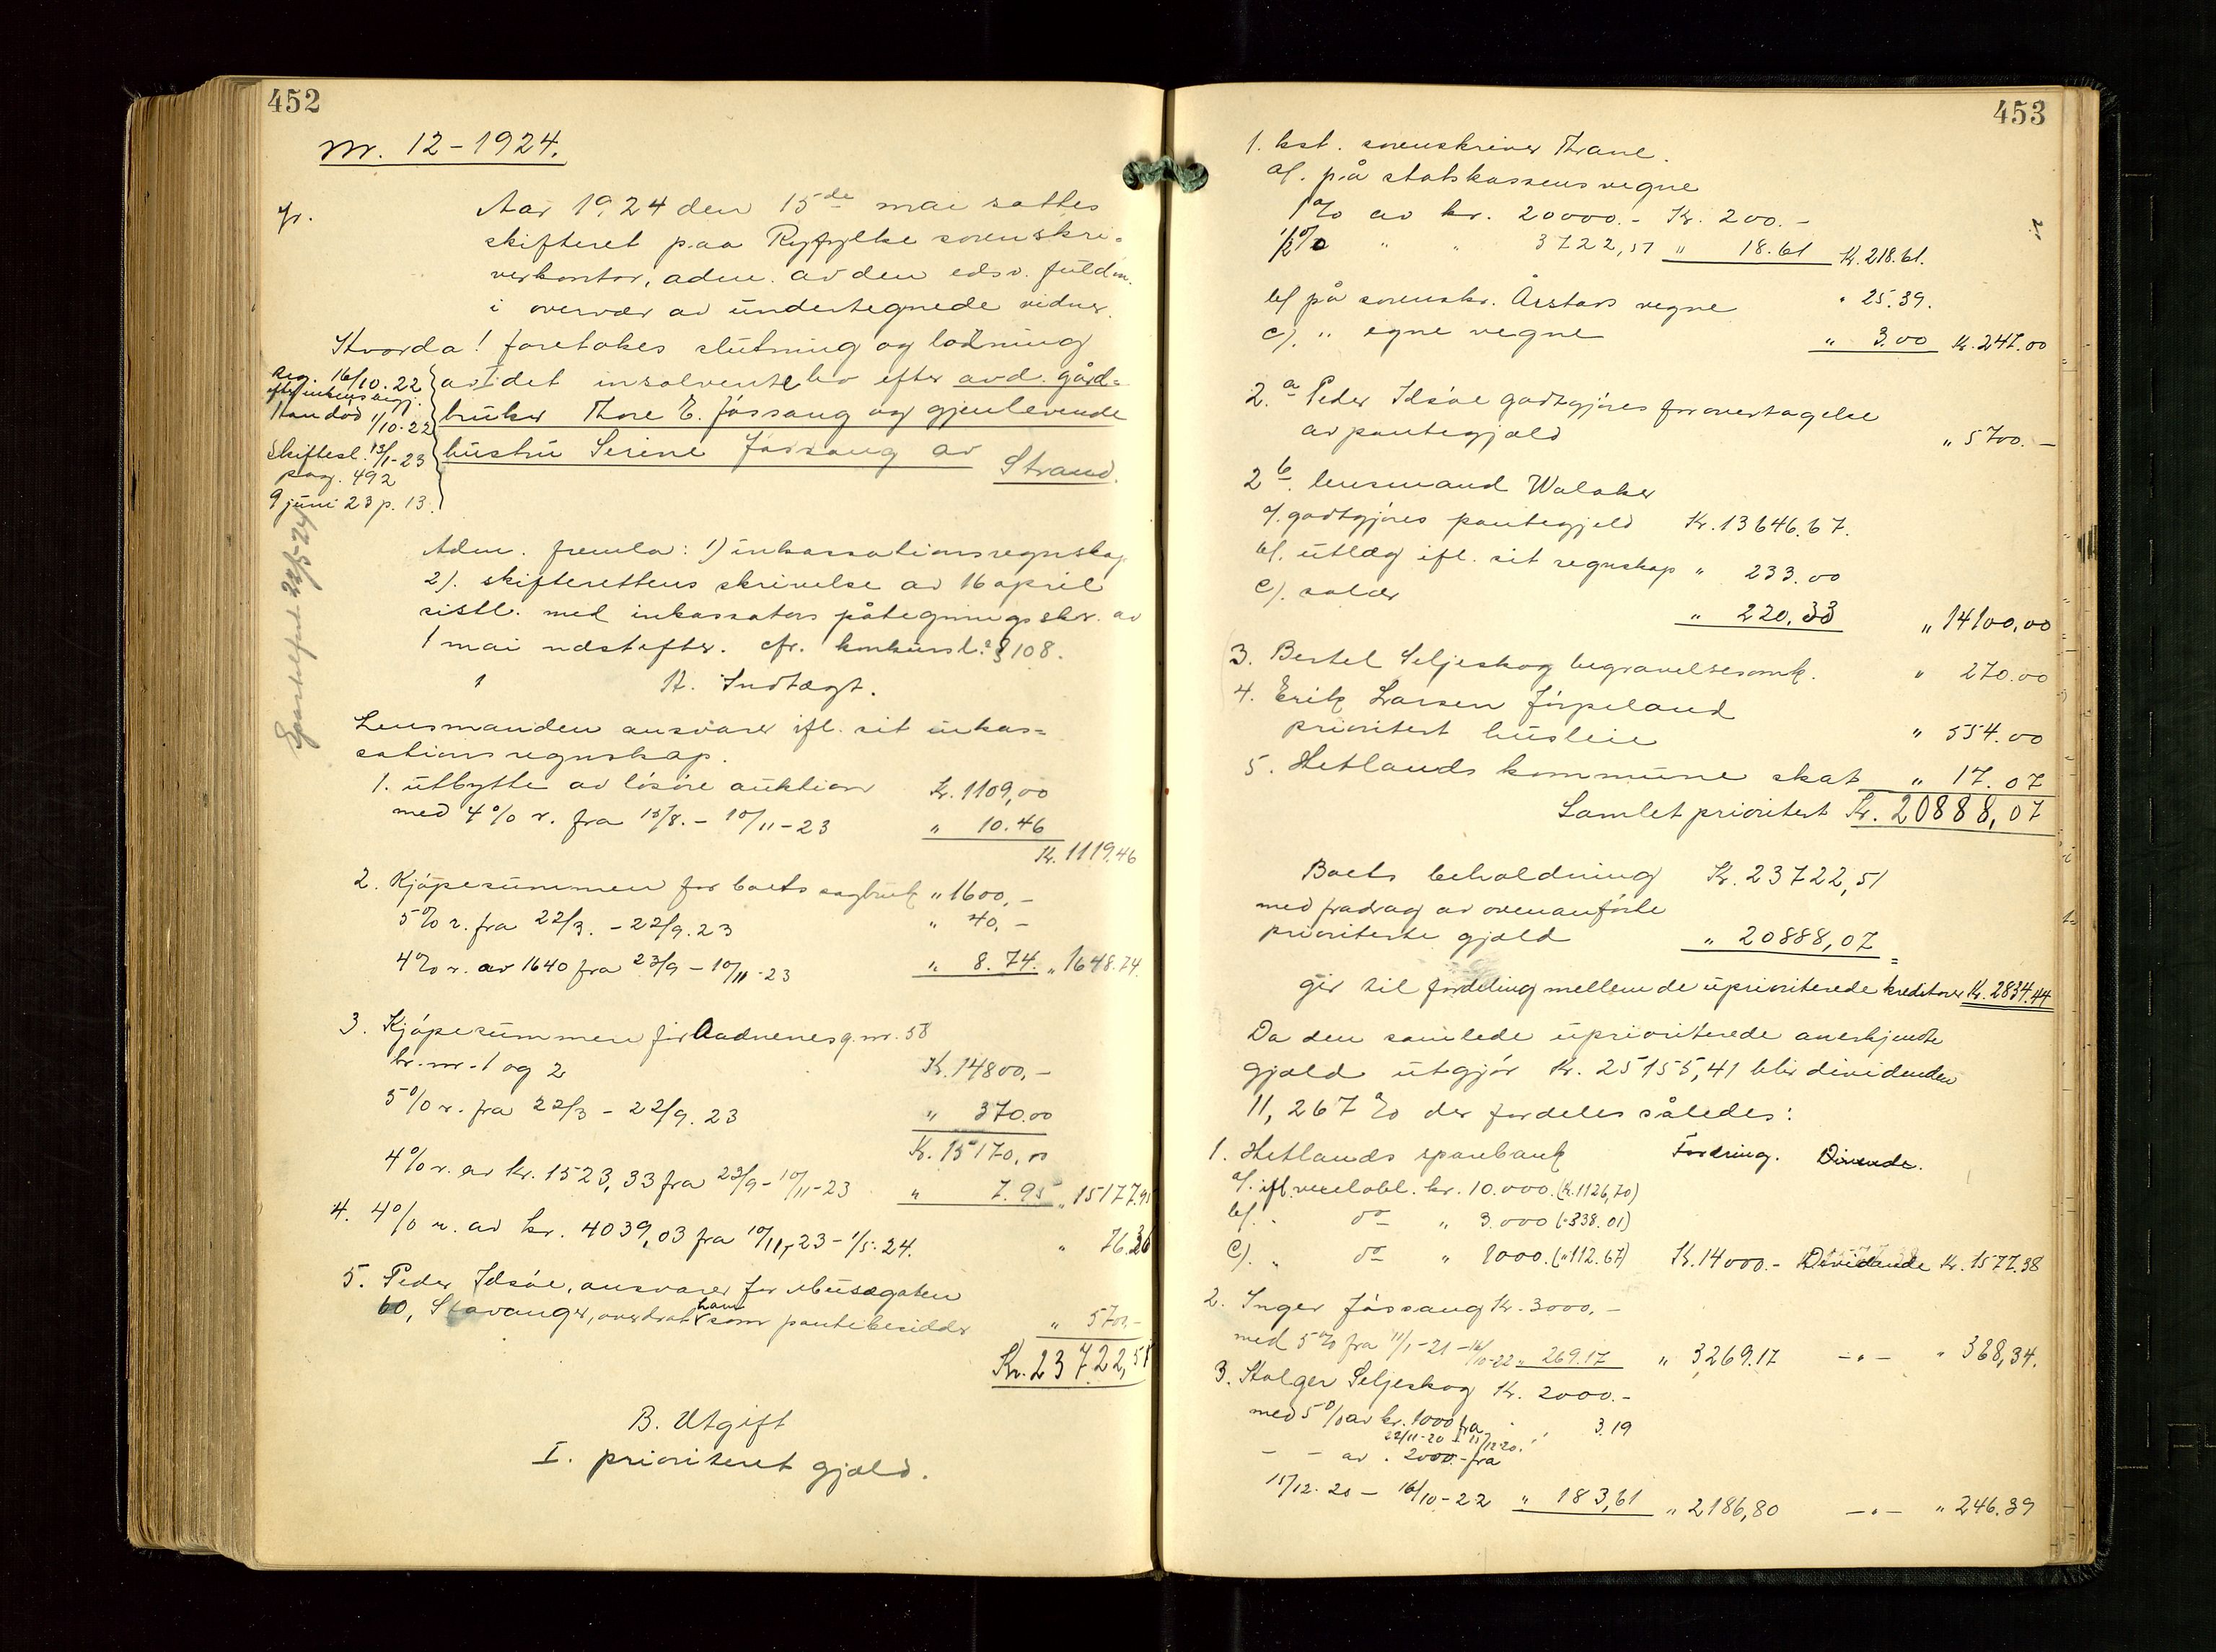 452
Nr. 12-1924.
Aar 1924 den 15de mai sattes
skifteret paa Ryfylke sorenskri-
verkontor, adm. av den edsv. fuldm.
i overvær av undertegnede vidner.
Hvorda! foretokes slutning og lodning
av det insolvente bo efter avd. gård-
bruker Thore E. Jøssang og gjenlevende
hustru Serine Jøssang av
Strand.
Reg. 16/10.22
Han død 1/10-22
Skiftesl. 13/1-23
pag. 492
9 juni 23 p. 13.
22/5-24
Adm. fremla: 1) inkassationsregnskap
2). skifterettens skrivelse av 16 april
sistl. med inkassators påtegningsskr. av
1 mai ndstefter. cfr. konkursl. § 108.
A. Indtægt.
Lensmanden ansvarer ifl. sit inkas-
sationsregnskap.
1. utbytte av løsøre auktion Kr. 1109,00
med 4% r. fra 15/8. - 10/11-23 " 10.46
Kr. 1119.46
2. Kjøpesummen for boets sagbruk " 1600,-
5% r. fra 22/3. - 22/9.23 " 40,-
4% r. av 1640 fra 23/9 - 10/11-23 " 8.74. " 1648.74.
3. Kjøpesummen for Aadnenes g.nr. 58
br.nr. 1 og 2 Kr. 14800,-
5% r. fra 22/3 - 22/9.23 " 370.00
Kr. 15170,00
4% r. av kr. 1523,33 fra 23/9 - 10/11-23 " 7.95 " 15177.95
4. 4% r. av kr. 4039,03 fra 10/11,23 - 1/5.24. " 76.36
5. Peder Idsøe, ansvarer for Musægaten
60, Stavanger, overdrat ham som pantebesidder " 5700,-
Kr. 23722,51
B. Utgift
I. prioriteret gjæld.
453
1. kst. sorenskriver Thrane.
a/. på statskassens vegne
1% av kr. 20000.- Kr. 200.-
1/2% " " 3722,51 " 18.61 Kr. 218.61.
b/ på sorenskr. Årstads vegne " 25.39.
c/. " egne vegne " 3.00 Kr. 247.00
2.a Peder Idsøe godtgjøres for overtagelse
av pantegjæld " 5700.-
2b. lensmand Walaker
a/. godtgjøres pantegjeld Kr. 13646.67.
b/. utlæg ifl. sit regnskap " 233.00
c/. salær " 220.33 " 14100,00
3. Bertel Seljeskog begravelsesomk. " 270.00
4. Erik Larsen Jørpeland
prioritert husleie " 554.00
5. Hetlands kommune skat " 17.07
Samlet prioritert Kr. 20888,07
Boets beholdning Kr. 23722,51
med fradrag av ovenanførte
prioriterte gjæld " 20888,07
gir til fordeling mellem de uprioriterede kreditorer Kr. 2834.44
Da den samlede uprioriterede anerkjendte
gjæld utgjør Kr. 25155,41 blir dividenden
11,267% der fordeles således:
1. Hetlands sparebank Fordring. Dividende.
a/. ifl. vexelobl. kr. 10.000. (K. 1126,70)
b/. " do " 3.000 (" 338.01)
c/. " do " 1000. (" 112.67) Kr. 14000.- Dividende Kr. 1577.38
2. Inger Jøssang Kr. 3000,-
med 5% fra 11/1-21 - 16/10-22 " 269.17 " 3269.17 -"- " 368,34.
3. Holger Seljeskog Kr. 2000.-
med 5% av kr. 1000 fra
22/11-20 - 15/12-20. " 3.19
- - av . 2000.- fra
15/12.20 - 16/10-22 " 183,61 " 2186,80 -"- " 246.39